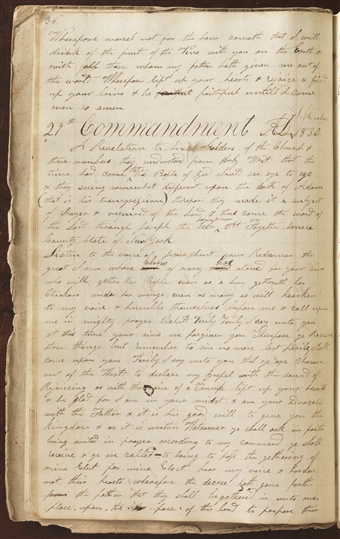 36.
Wherefore marvel not for the hour cometh that I will
drink of the fruit of the Vine with you on the Earth &
with all those whom my father hath given me out of
the world Wherefore lift up your hearts & rejoice & gird
up your loins & be faithful untill I come
even so amen
29th Commandment AD 1830
A Revelation to six Elders of the Church &
three members they understood from Holy Writ that the
time had come that the People of God should see eye to eye
& they seeing somewhat different upon the death of Adam
(that is his transgression) therefore they made it a subject
of Prayer & enquired of the Lord & thus came the word of
the Lord through Joseph the Seer saying at Fayette Seneca
County State of New York
Listen to the voice of Jesus Christ your Redeemer the
great I am whose arm of mercy hath atoned for your sins
who will gether his People even as a hen gethereth her
Chickens under her wings even as many as will hearken
to my voice & humble themselves before me & call upon
me in mighty prayer Behold Verily Verily I say unto you
at this time your sins are forgiven you Therefore ye receive
these things but remember to sin no more lest perils shall
come upon you Verily I say unto you that ye are chosen
out of the World to declare my Gospel with the sound of
Rejoicing as with the voice of a Trump lift up your hearts
& be glad for I am in your midst & am your Advocate
with the Father & it is his good will to give you the
Kingdom & as it is written Whatsoever ye shall ask in faith
being united in prayer according to my command ye shall
receive & ye are called to bring to pass the gethering of
mine Elect for mine Elect hear my voice & harden
not their hearts wherefore the decree hath gone forth
from the father that they shall be gethered in unto one
place upon the face of this land to prepare their